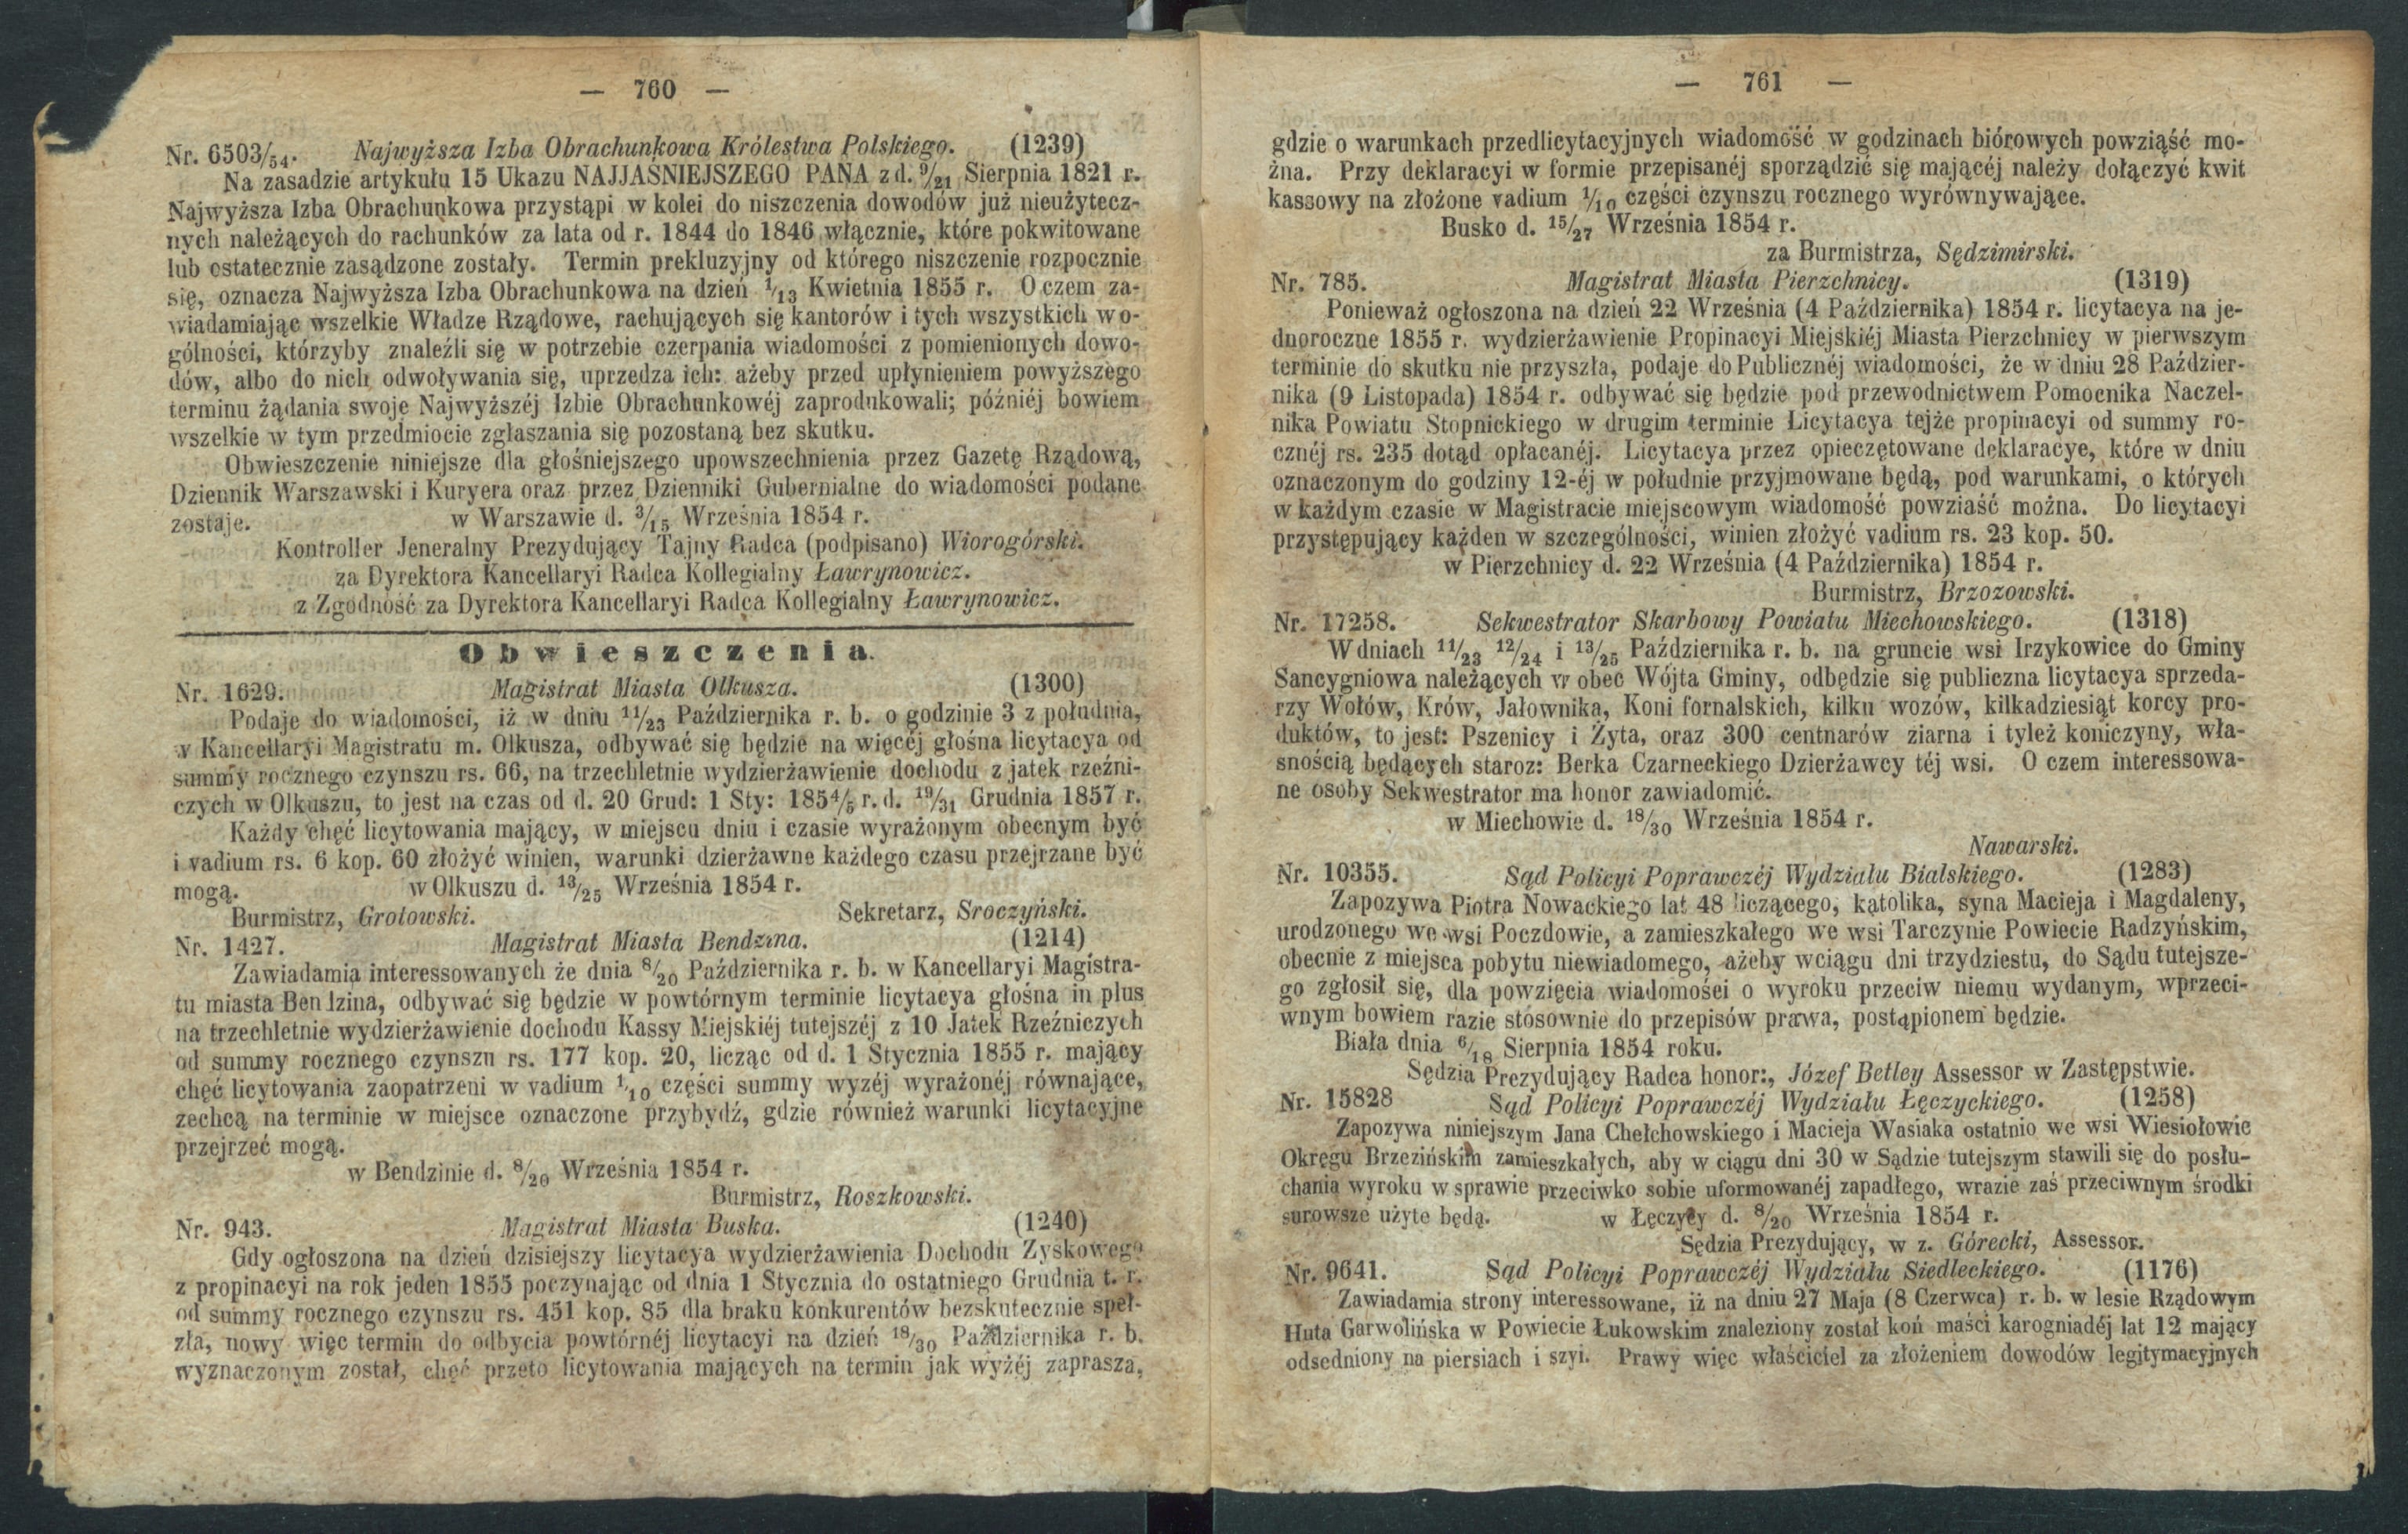 — 760 —
Nr. 6503/54. Najwyższa Izba Obrachunkowa Królestwa Polskiego. (1239)
Na zasadzie artykułu 15 Ukazu NAJJAŚNIEJSZEGO PANA z d. 9/21 Sierpnia 1821 r.
Najwyższa Izba Obrachunkowa przystąpi w kolei do niszczenia dowodów już nieużytecz-
nych należących do rachunków za lata od r. 1844 do 1846 włącznie, które pokwitowane
lub ostatecznie zasądzone zostały. Termin prekluzyjny od którego niszczenie rozpocznie
się, oznacza Najwyższa Izba Obrachunkowa na dzień 1/13 Kwietnia 1855 r. O czem za-
wiadamiając wszelkie Władze Rządowe, rachujących się kantorów i tych wszystkich w o-
gólności, którzyby znaleźli się w potrzebie czerpania wiadomości z pomienionych dowo-
dów, albo do nich odwoływania się, uprzedza ich: ażeby przed upłynieniem powyższego
terminu żądania swoje Najwyższéj Izbie Obrachunkowéj zaprodukowali; późniéj bowiem
wszelkie w tym przedmiocie zgłaszania się pozostaną bez skutku.
Obwieszczenie niniejsze dla głośniejszego upowszechnienia przez Gazetę Rządową,
Dziennik Warszawski i Kuryera oraz przez Dzienniki Gubernialne do wiadomości podane
zostaje. w Warszawie d. 3/15 Września 1854 r.
Kontroller Jeneralny Prezydujący Tajny Radca (podpisano) Wiorogórski.
za Dyrektora Kancellaryi Radca Kollegialny Ławrynowicz.
z Zgodność za Dyrektora Kancellaryi Radca Kollegialny Ławrynowicz.
Obwieszczenia.
Nr. 1629. Magistrat Miasta Olkusza. (1300)
Podaje do wiadomości, iż w dniu 11/23 Października r. b. o godzinie 3 z południa,
w Kancellaryi Magistratu m. Olkusza, odbywać się będzie na więcéj głośna licytacya od
summy rocznego czynszu rs. 66, na trzechletnie wydzierżawienie dochodu z jatek rzeźni-
czych w Olkuszu, to jest na czas od d. 20 Grud: 1 Sty: 1854/5 r. d. 19/31 Grudnia 1857 r.
Każdy chęć licytowania mający, w miejscu dniu i czasie wyrażonym obecnym być
i vadium rs. 6 kop. 60 złożyć winien, warunki dzierżawne każdego czasu przejrzane być
mogą. w Olkuszu d. 13/25 Września 1854 r.
Burmistrz, Grotowski. Sekretarz, Sroczyński.
Nr. 1427. Magistrat Miasta Bendzina. (1214)
Zawiadamia interessowanych że dnia 8/20 Października r. b. w Kancellaryi Magistra-
tu miasta Bendzina, odbywać się będzie w powtórnym terminie licytacya głośna in plus
na trzechletnie wydzierżawienie dochodu Kassy Miejskiéj tutejszéj z 10 Jatek Rzeźniczych
od summy rocznego czynszu rs. 177 kop. 20, licząc od d. 1 Stycznia 1855 r. mający
chęć licytowania zaopatrzeni w vadium 1/10 części summy wyzéj wyrażonéj równające,
zechcą na terminie w miejsce oznaczone przybydź, gdzie również warunki licytacyjne
przejrzeć mogą.
w Bendzinie d. 8/20 Września 1854 r.
Burmistrz, Roszkowski.
Nr. 943. Magistrat Miasta Buska. (1240)
Gdy ogłoszona na dzień dzisiejszy licytacya wydzierżawienia Dochodu Zyskowego
z propinacyi na rok jeden 1855 poczynając od dnia 1 Stycznia do ostatniego Grudnia t. r.
od summy rocznego czynszu rs. 451 kop. 85 dla braku konkurentów bezskutecznie speł-
zła, nowy więc termin do odbycia powtórnéj licytacyi na dzień 18/30 Października r. b.
wyznaczonym został, chęć przeto licytowania mających na termin jak wyżéj zaprasza,
— 761 —
gdzie o warunkach przedlicytacyjnych wiadomość w godzinach biórowych powziąść mo-
żna. Przy deklaracyi w formie przepisanéj sporządzić się mającéj należy dołączyć kwit
kassowy na złożone vadium 1/10 części czynszu rocznego wyrównywające.
Busko d. 15/27 Września 1854 r.
za Burmistrza, Sędzimirski.
Nr. 785. Magistrat Miasta Pierzchnicy. (1319)
Ponieważ ogłoszona na dzień 22 Września (4 Października) 1854 r. licytacya na je-
dnoroczne 1855 r. wydzierżawienie Propinacyi Miejskiéj Miasta Pierzchnicy w pierwszym
terminie do skutku nie przyszła, podaje do Publicznéj wiadomości, że w dniu 28 Paździer-
nika (9 Listopada) 1854 r. odbywać się będzie pod przewodnictwem Pomocnika Naczel-
nika Powiatu Stopnickiego w drugim terminie Licytacya tejże propinacyi od summy ro-
cznéj rs. 235 dotąd opłacanéj. Licytacya przez opieczętowane deklaracye, które w dniu
oznaczonym do godziny 12-éj w południe przyjmowane będą, pod warunkami, o których
w każdym czasie w Magistracie miejscowym wiadomość powziaść można. Do licytacyi
przystępujący każden w szczególności, winien złożyć vadium rs. 23 kop. 50.
w Pierzchnicy d. 22 Września (4 Października) 1854 r.
Burmistrz, Brzozowski.
Nr. 17258. Sekwestrator Skarbowy Powiatu Miechowskiego. (1318)
W dniach 11/23 12/24 i 13/25 Października r. b. na gruncie wsi Irzykowice do Gminy
Sancygniowa należących w obec Wójta Gminy, odbędzie się publiczna licytacya sprzeda-
rzy Wołów, Krów, Jałownika, Koni fornalskich, kilku wozów, kilkadziesiąt korcy pro-
duktów, to jest: Pszenicy i Żyta, oraz 300 centnarów ziarna i tyleż koniczyny, wła-
snością będących staroz: Berka Czarneckiego Dzierżawcy téj wsi. O czem interessowa-
ne osoby Sekwestrator ma honor zawiadomić.
w Miechowie d. 18/30 Września 1854 r.
Nawarski.
Nr. 10355. Sąd Policyi Poprawczéj Wydziału Bialskiego. (1283)
Zapozywa Piotra Nowackiego lat 48 liczącego, katolika, syna Macieja i Magdaleny,
urodzonego we wsi Poczdowie, a zamieszkałego we wsi Tarczynie Powiecie Radzyńskim,
obecnie z miejsca pobytu niewiadomego, ażeby wciągu dni trzydziestu, do Sądu tutejsze-
go zgłosił się, dla powzięcia wiadomości o wyroku przeciw niemu wydanym, wprzeci-
wnym bowiem razie stósownie do przepisów prawa, postąpionem będzie.
Biała dnia 6/18 Sierpnia 1854 roku.
Sędzia Prezydujący Radca honor:, Józef Betley Assessor w Zastępstwie.
Nr. 15828 Sąd Policyi Poprawczéj Wydziału Łęczyckiego. (1258)
Zapozywa niniejszym Jana Chełchowskiego i Macieja Wasiaka ostatnio we wsi Wiesiołowie
Okręgu Brzezińskim zamieszkałych, aby w ciągu dni 30 w Sądzie tutejszym stawili się do posłu-
chania wyroku w sprawie przeciwko sobie uformowanéj zapadłego, wrazie zaś przeciwnym środki
surowsze użyte będą. w Łęczycy d. 8/20 Września 1854 r.
Sędzia Prezydujący, w z. Górecki, Assessor.
Nr. 9641. Sąd Policyi Poprawczéj Wydziału Siedleckiego. (1176)
Zawiadamia strony interessowane, iż na dniu 27 Maja (8 Czerwca) r. b. w lesie Rządowym
Huta Garwolińska w Powiecie Łukowskim znaleziony został koń maści karogniadéj lat 12 mający
odsedniony na piersiach i szyi. Prawy więc właściciel za złożeniem dowodów legitymacyjnych